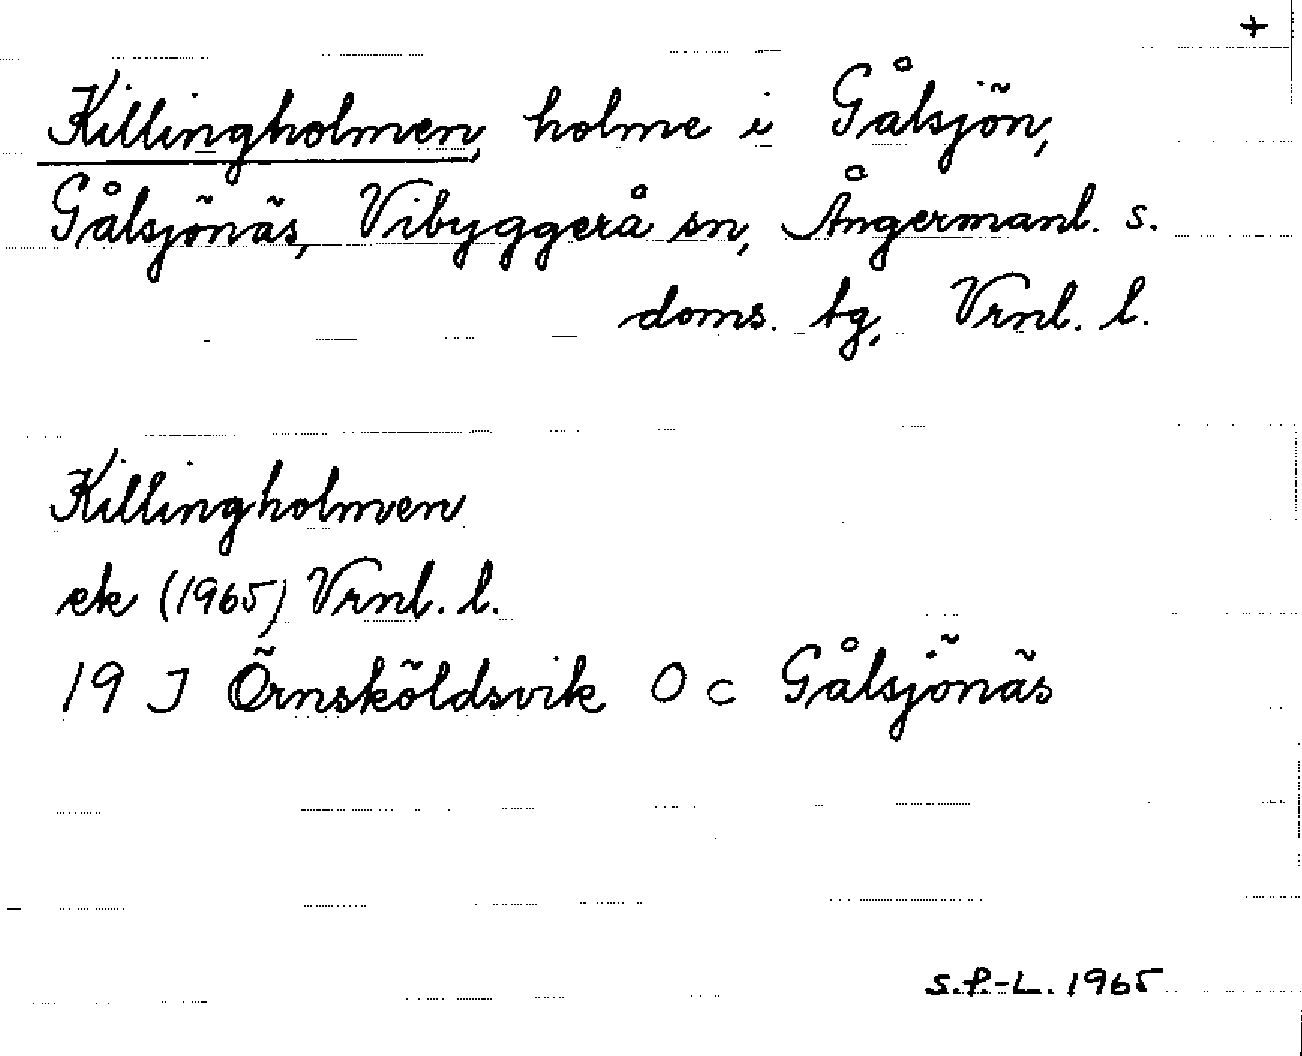 +
Killingholmen, holme i Gålsjön,
Gålsjönäs, Vibyggerå sn, Ångermanl. s.
doms. tg, Vrnl. l.
Killingholmen
ek (1965) Vrnl. l.
19 J Örnsköldsvik O c Gålsjönäs
S.P.-L. 1965